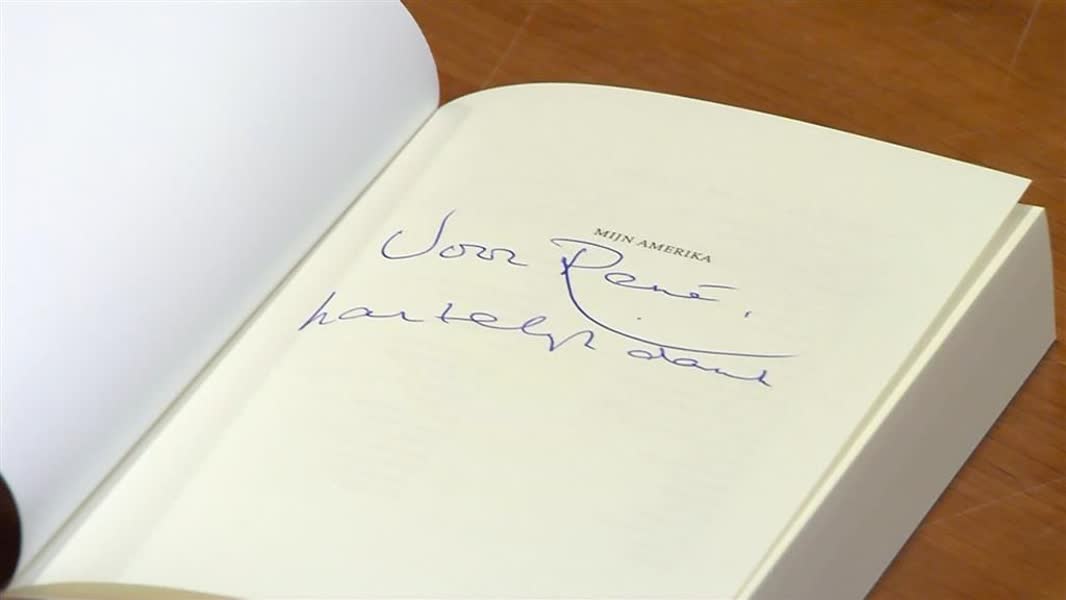 MIJN AMERIKA
Voor René,
hartelijk dank